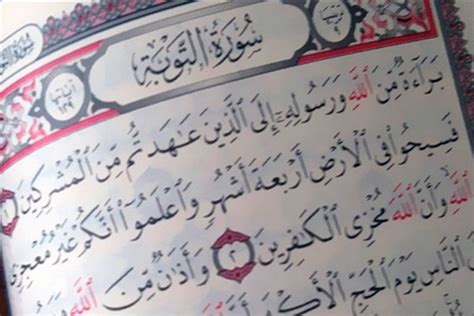 سُورَةُ التَّوْبَةِ
ترتيبها ٩
آياتها ١٢٩
بَرَآءَةٌ مِّنَ ٱللَّهِ وَرَسُولِهِۦٓ إِلَى ٱلَّذِينَ عَٰهَدتُّم مِّنَ ٱلْمُشْرِكِينَ ١
فَسِيحُوا۟ فِى ٱلْأَرْضِ أَرْبَعَةَ أَشْهُرٍ وَٱعْلَمُوٓا۟ أَنَّكُمْ غَيْرُ مُعْجِزِى
ٱللَّهِ وَأَنَّ ٱللَّهَ مُخْزِى ٱلْكَٰفِرِينَ ٢ وَأَذَٰنٌ مِّنَ ٱللَّهِ
ٱلنَّاسِ يَوْمَ ٱلْحَجِّ ٱلْأَكْبَرِ